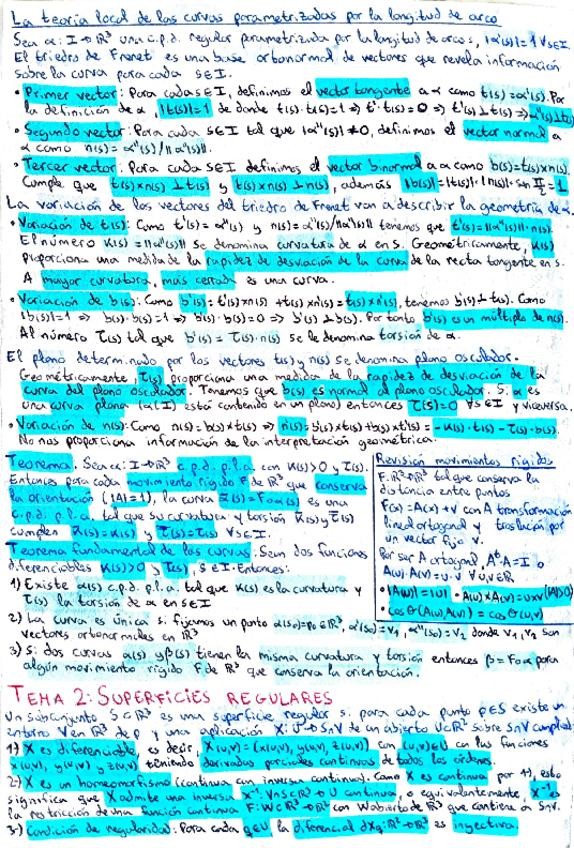 La teoría local de las curvas parametrizadas por la longitud de arco
Sea α: I→ℝ³ una c.p.d. regular parametrizada por la longitud de arco s, |α'(s)|=1 ∀s∈I
El triedro de Frenet es una base ortonormal de vectores que revela información
sobre la curva para cada s∈I.
• Primer vector: Para cada s∈I, definimos el vector tangente a α como t(s)=α'(s). Por
la definición de α, |t(s)|=1 de donde t(s)·t(s)=1 ⇒ t'·t(s)=0 ⇒ t'(s)⊥t(s) ⇒ α''(s)⊥t(s)
• Segundo vector: Para cada s∈I tal que |α''(s)|≠0, definimos el vector normal a
α como n(s)=α''(s)/||α''(s)||.
• Tercer vector: Para cada s∈I definimos el vector binormal a α como b(s)=t(s)×n(s).
Cumple que t(s)×n(s)⊥t(s) y t(s)×n(s)⊥n(s), además |b(s)|=|t(s)|·|n(s)|·sin π/2=1
La variación de los vectores del triedro de Frenet van a describir la geometría de α.
• Variación de t(s): Como t'(s)=α''(s) y n(s)=α''(s)/||α''(s)|| tenemos que t'(s)=||α''(s)||·n(s).
El número κ(s)=||α''(s)|| se denomina curvatura de α en s. Geométricamente, κ(s)
proporciona una medida de la rapidez de desviación de la curva de la recta tangente en s.
A mayor curvatura, más cerrada es una curva.
• Variación de b(s): Como b'(s)=t'(s)×n(s)+t(s)×n'(s)=t(s)×n'(s), tenemos b'(s)⊥t(s). Como
|b(s)|=1 ⇒ b(s)·b(s)=1 ⇒ b'(s)·b(s)=0 ⇒ b'(s)⊥b(s). Por tanto b'(s) es un múltiplo de n(s).
Al número τ(s) tal que b'(s)=τ(s)·n(s) se le denomina torsión de α.
El plano determinado por los vectores t(s) y n(s) se denomina plano osculador.
Geométricamente, τ(s) proporciona una medida de la rapidez de desviación de la
curva del plano osculador. Tenemos que b(s) es normal al plano osculador. Si α es
una curva plana (α(I) está contenido en un plano) entonces τ(s)=0 ∀s∈I y viceversa.
• Variación de n(s): Como n(s)=b(s)×t(s) ⇒ n'(s)=b'(s)×t(s)+b(s)×t'(s)=-κ(s)·t(s)-τ(s)·b(s).
No nos proporciona información de la interpretación geométrica.
Teorema. Sea α: I→ℝ³ c.p.d. p.l.a. con κ(s)>0 y τ(s).
Entonces para cada movimiento rígido F de ℝ³ que conserva
la orientación (|A|=1), la curva ᾱ(s)=F∘α(s) es una
c.p.d. p.l.a. tal que su curvatura y torsión κ̄(s) y τ̄(s)
cumplen κ̄(s)=κ(s) y τ̄(s)=τ(s) ∀s∈I.
Teorema fundamental de las curvas. Sean dos funciones
diferenciables κ(s)>0 y τ(s), s∈I. Entonces:
1) Existe α(s) c.p.d. p.l.a. tal que κ(s) es la curvatura y
τ(s) la torsión de α en s∈I
2) La curva es única si fijamos un punto α(s₀)=p₀∈ℝ³, α'(s₀)=v₁, α''(s₀)=v₂ donde v₁, v₂ son
vectores ortonormales en ℝ³
3) Si dos curvas α(s) y β(s) tienen la misma curvatura y torsión entonces β=F∘α para
algún movimiento rígido F de ℝ³ que conserva la orientación.
Revisión movimientos rígidos
F: ℝ³→ℝ³ tal que conserva la
distancia entre puntos
F(x)=A(x)+v con A transformación
lineal ortogonal y traslación por
un vector fijo v.
Por ser A ortogonal, Aᵗ·A=I o
A(u)·A(v)=u·v ∀u,v∈ℝ
• |A(u)|=|u| • A(u)×A(v)=u×v (|A|>0)
• cos θ(A(u),A(v))=cos θ(u,v)
TEMA 2: SUPERFICIES REGULARES
Un subconjunto S⊂ℝ³ es una superficie regular si para cada punto p∈S existe un
entorno V en ℝ³ de p y una aplicación X: U→S∩V de un abierto U⊂ℝ² sobre S∩V cumpliendo:
1) X es diferenciable, es decir, X(u,v)=(x(u,v), y(u,v), z(u,v)) con (u,v)∈U con las funciones
x(u,v), y(u,v) y z(u,v) teniendo derivadas parciales continuas de todos los órdenes.
2-) X es un homeomorfismo (continua con inversa continua). Como X es continua por 1), esto
significa que X admite una inversa X⁻¹: V∩S⊂ℝ³→U continua, o equivalentemente, X⁻¹ es
la restricción de una función continua F: W⊂ℝ³→ℝ² con W abierto de ℝ³ que contiene a S∩V.
3-) Condición de regularidad: Para cada q∈U, la diferencial dXq: ℝ²→ℝ³ es inyectiva.